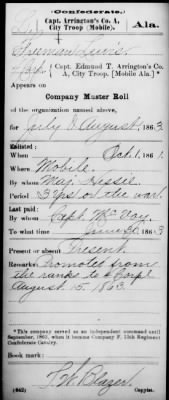 Confederate.
Capt. Arrington's Co. A,
City Troop (Mobile)
Ala.
Truman Lewis
Capt. Edmund T. Arrington's Co.
A, City Troop. (Mobile Ala.)*
Appears on
Company Muster Roll
of the organization named above,
for July & August, 1863.
Enlisted:
When Oct. 1, 1861.
Where Mobile
By whom Maj. Hessie
Period 3 yrs or the war
Last paid:
By whom Capt. McVoy
To what time June 30, 1863
Present or absent Present
Remarks: Promoted from
the ranks to Corpl
August 15. 1863
*This company served as an independent command until
September, 1863, when it became Company F, 15th Regiment
Confederate Cavalry.
Book mark:
(642)
P. W. Blazer
Copyist.